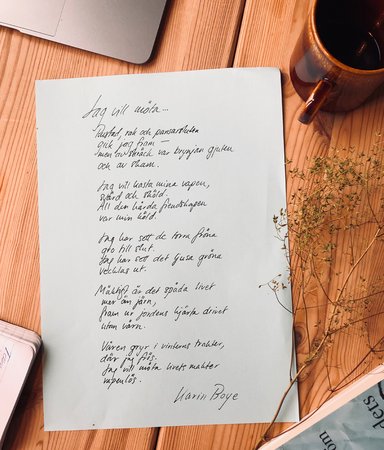 Jag vill möta...
Rustad, rak och pansarsluten
gick jag fram —
men av skräck var brynjan gjuten
och av skam.
Jag vill kasta mina vapen,
svärd och sköld.
All den hårda fiendskapen
var min köld.
Jag har sett de torra fröna
gro till slut.
Jag har sett det ljusa gröna
vecklas ut.
Mäktigt är det späda livet
mer än järn,
fram ur jordens hjärta drivet
utan värn.
Våren gryr i vinterns trakter,
där jag frös.
Jag vill möta livets makter
vapenlös.
Karin Boye
om